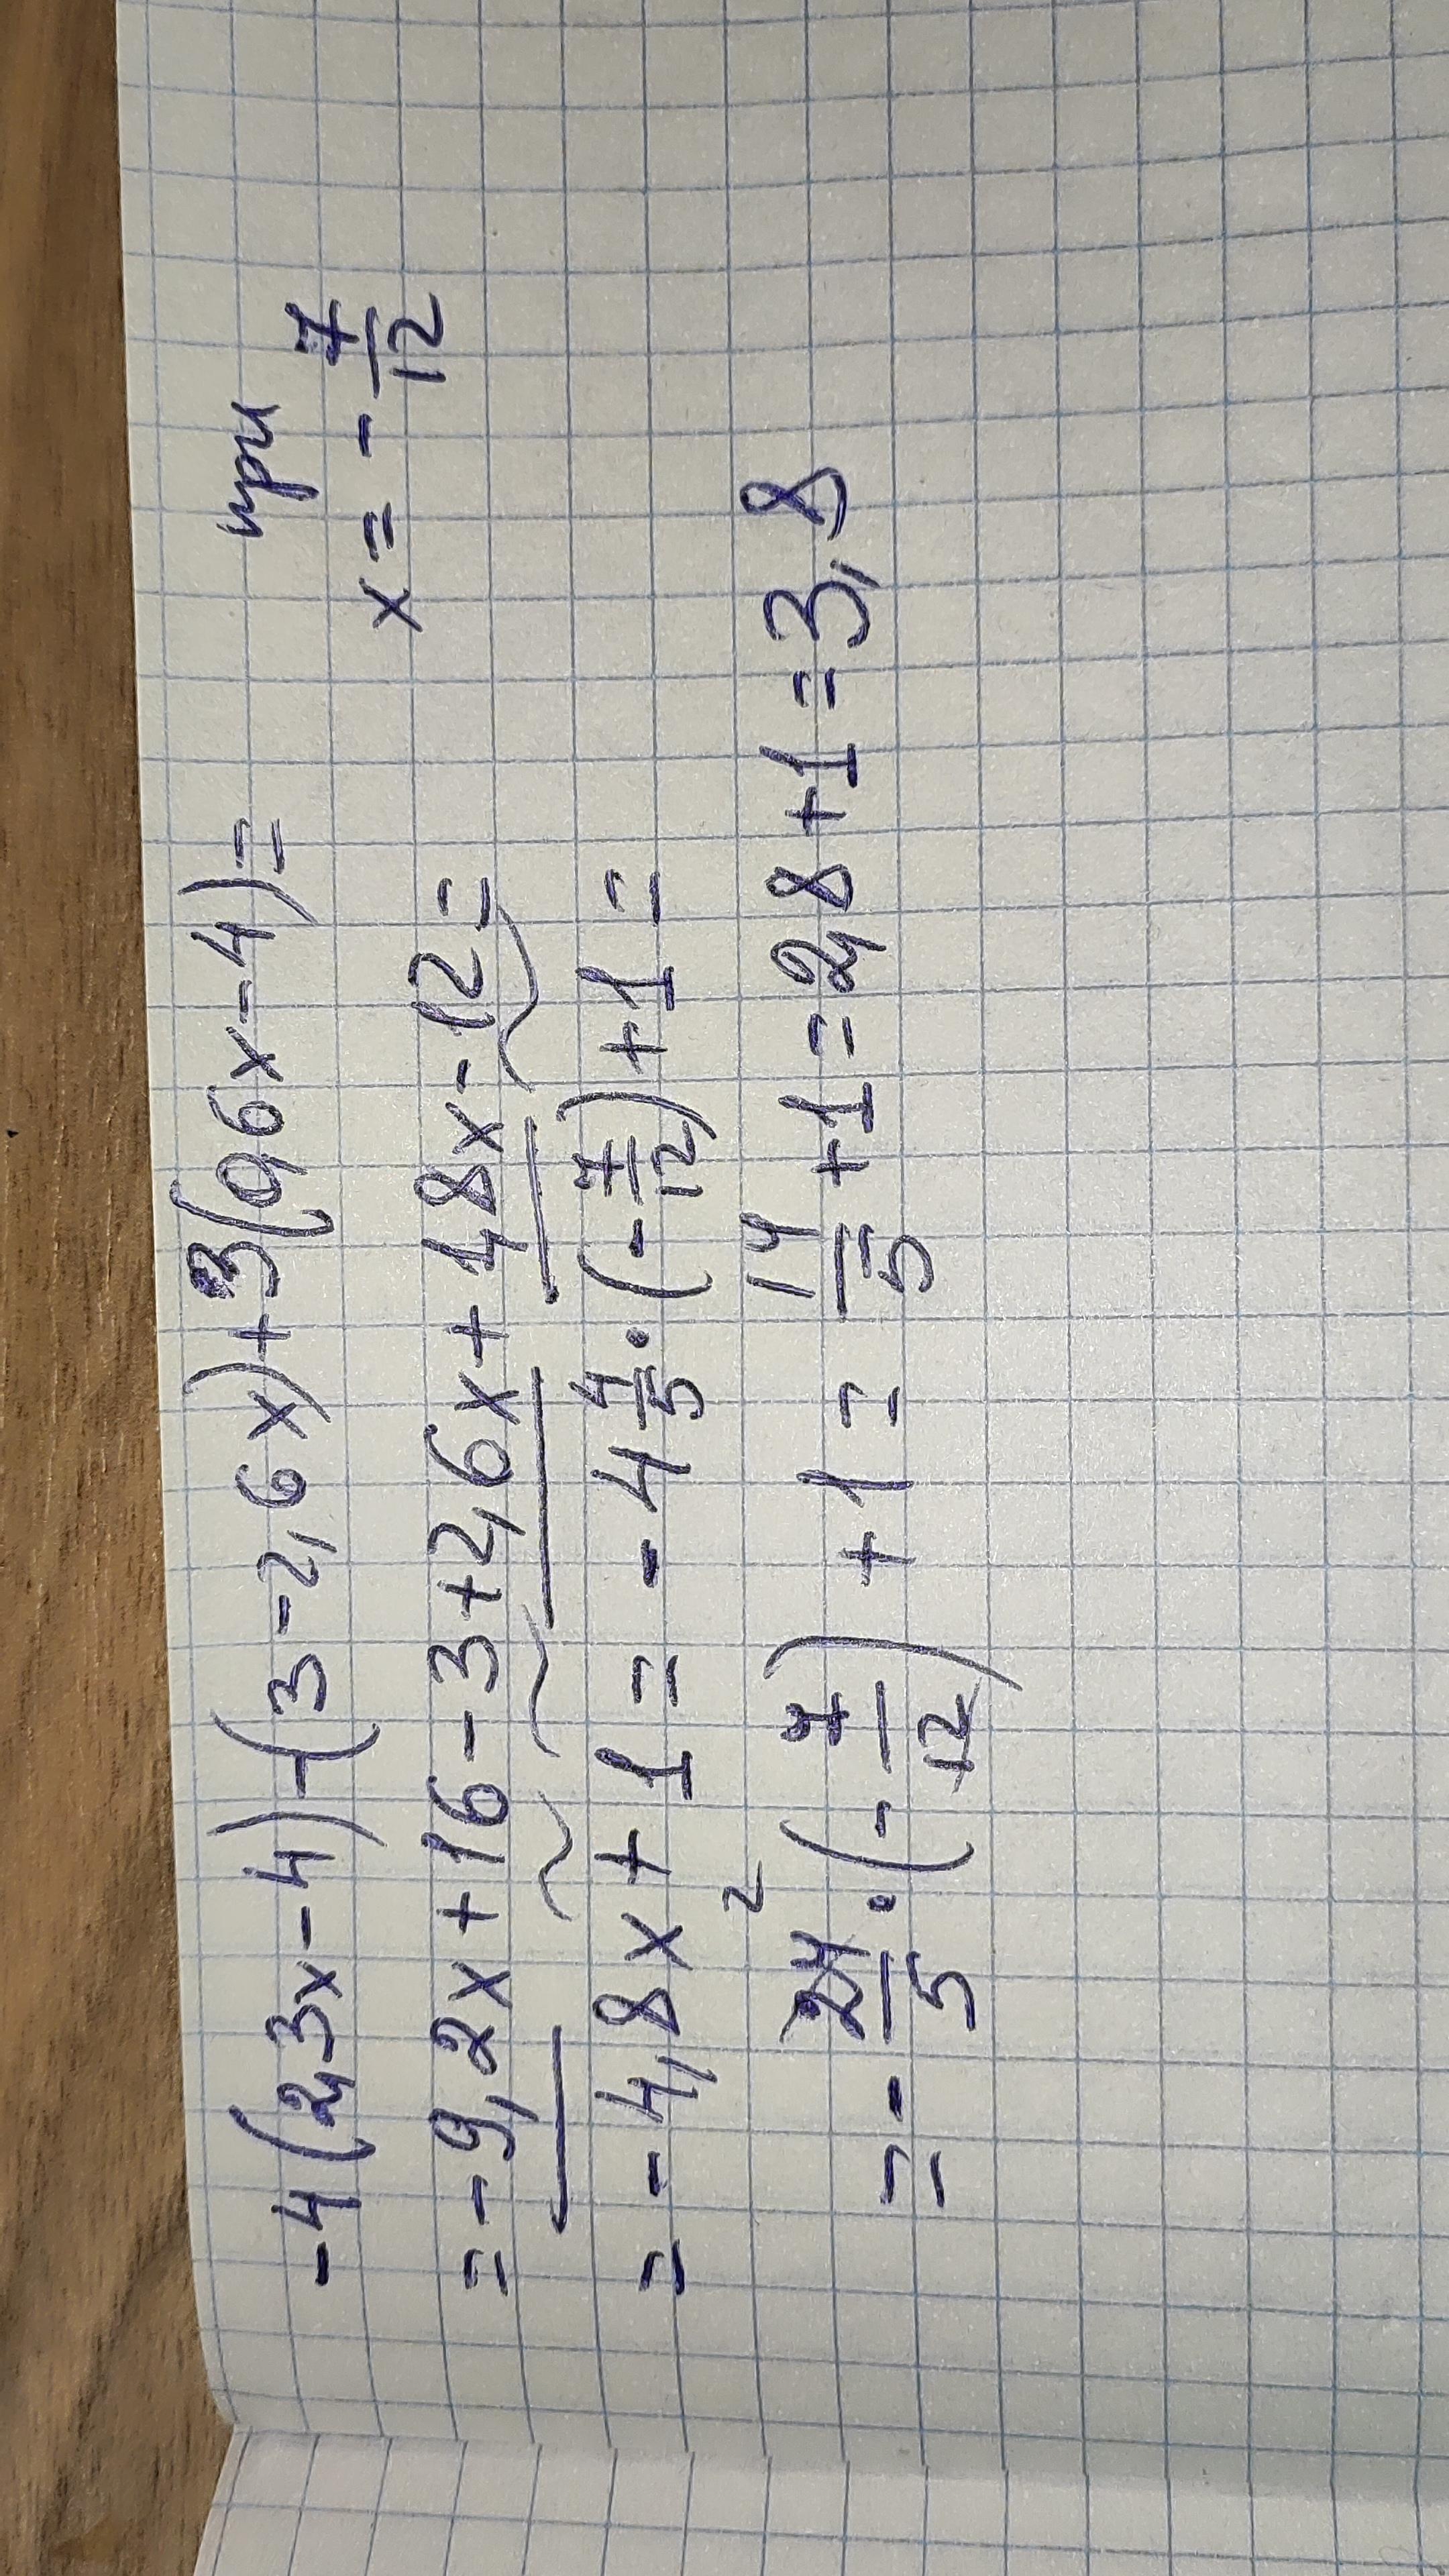 -4(2,3x-4)-(3-2,6x)+3(0,6x-4)=
при
x = - 7/12
= -9,2x+16-3+2,6x+4,8x-12=
= -4,8x+1 = -4 4/5 · (-7/12)+1 =
= - 24/5 · (-7/12) +1 = 14/5 +1=2,8+1=3,8
2